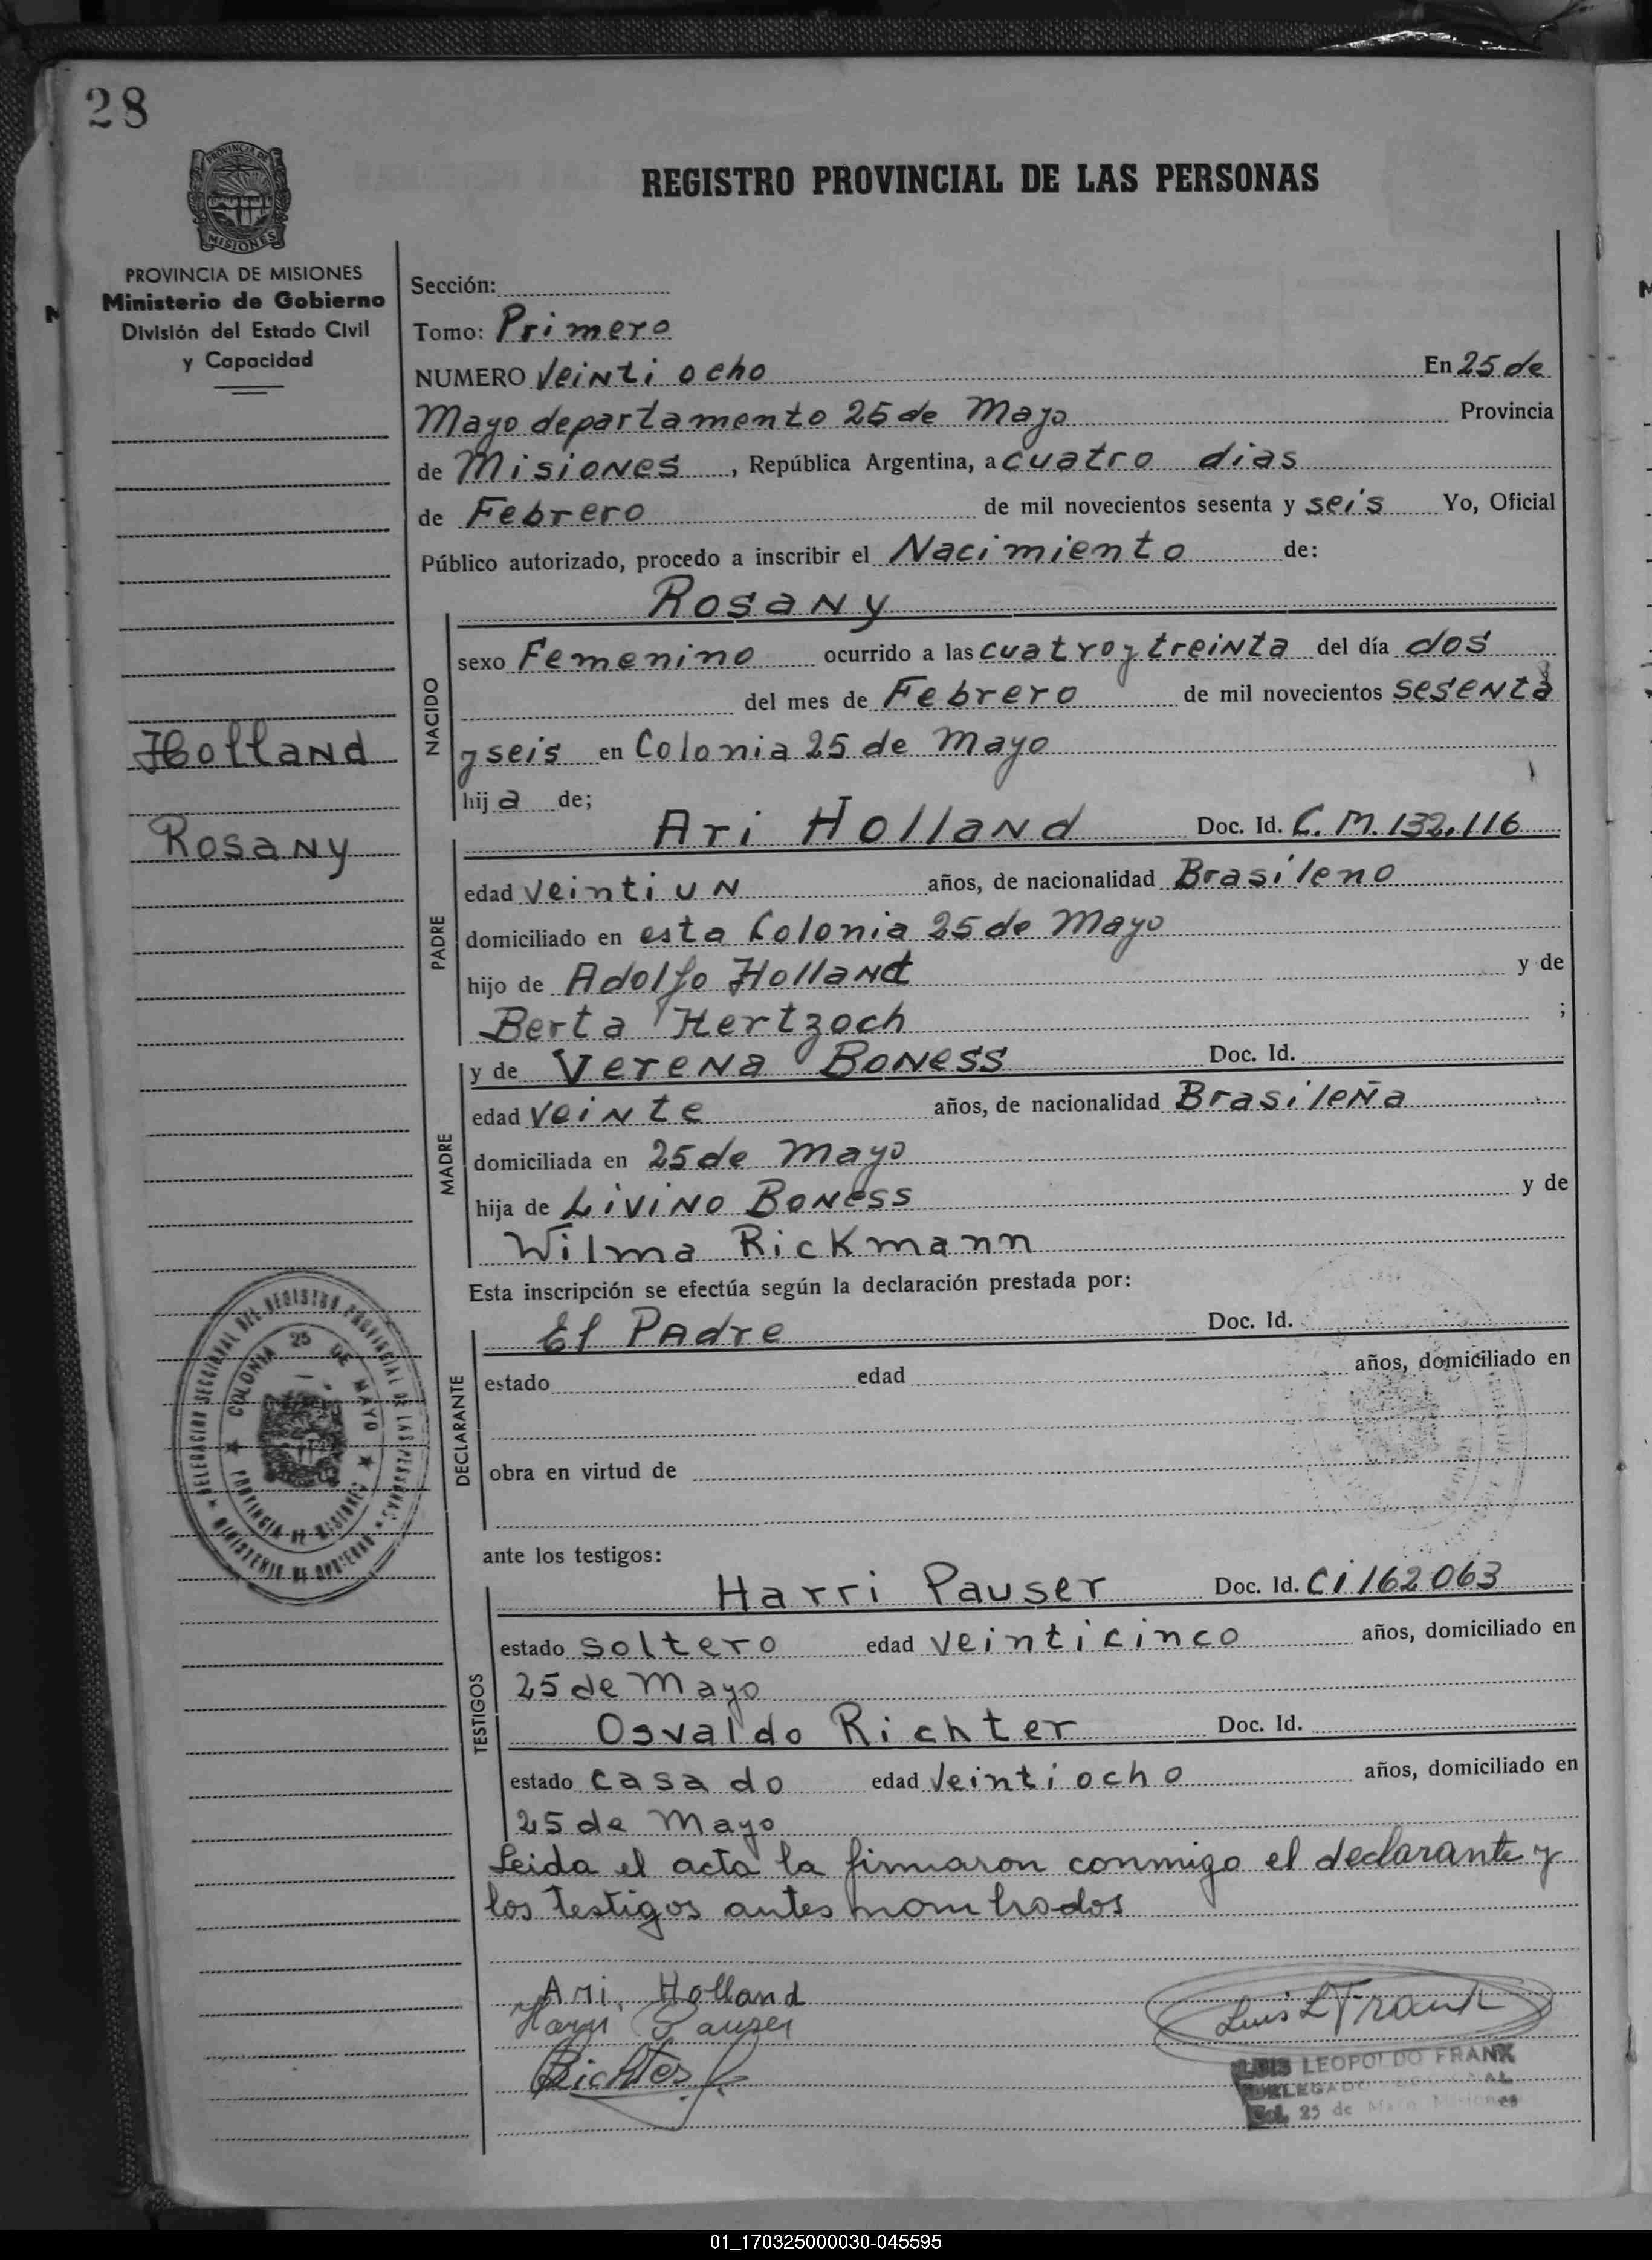 28
REGISTRO PROVINCIAL DE LAS PERSONAS
PROVINCIA DE
MISIONES
PROVINCIA DE MISIONES
Ministerio de Gobierno
División del Estado Civil
y Capacidad
Holland
Rosany
Sección:
Tomo: Primero
NUMERO Veinti ocho En 25 de
Mayo departamento 25 de Mayo Provincia
de Misiones, República Argentina, a cuatro dias
de Febrero de mil novecientos sesenta y seis Yo, Oficial
Público autorizado, procedo a inscribir el Nacimiento de:
Rosany
NACIDO
sexo Femenino ocurrido a las cuatro y treinta del día dos
del mes de Febrero de mil novecientos sesenta
y seis en Colonia 25 de Mayo
hija de;
PADRE
Ari Holland Doc. Id. C.M.132.116
edad veinti un años, de nacionalidad Brasileno
domiciliado en esta Colonia 25 de Mayo
hijo de Adolfo Holland y de
Berta Hertzoch ;
MADRE
y de Verena Boness Doc. Id.
edad veinte años, de nacionalidad Brasileña
domiciliada en 25 de Mayo
hija de Livino Boness y de
Wilma Rickmann
Esta inscripción se efectúa según la declaración prestada por:
DECLARANTE
El Padre Doc. Id.
estado edad años, domiciliado en
obra en virtud de
DELEGACION SECCIONAL DEL REGISTRO PROVINCIAL DE LAS PERSONAS
MINISTERIO DE GOBIERNO
COLONIA 25 DE MAYO
PROVINCIA DE MISIONES
ante los testigos:
TESTIGOS
Harri Pauser Doc. Id. Ci 162063
estado soltero edad veinticinco años, domiciliado en
25 de Mayo
Osvaldo Richter Doc. Id.
estado casado edad veintiocho años, domiciliado en
25 de Mayo
Leida el acta la firmaron conmigo el declarante y
los testigos antes nombrados
Ari. Holland
Harri Pauser
Richter
Luis L Frank
LUIS LEOPOLDO FRANK
DELEGADO SECCIONAL
Col. 25 de Mayo Misiones
01_170325000030-045595